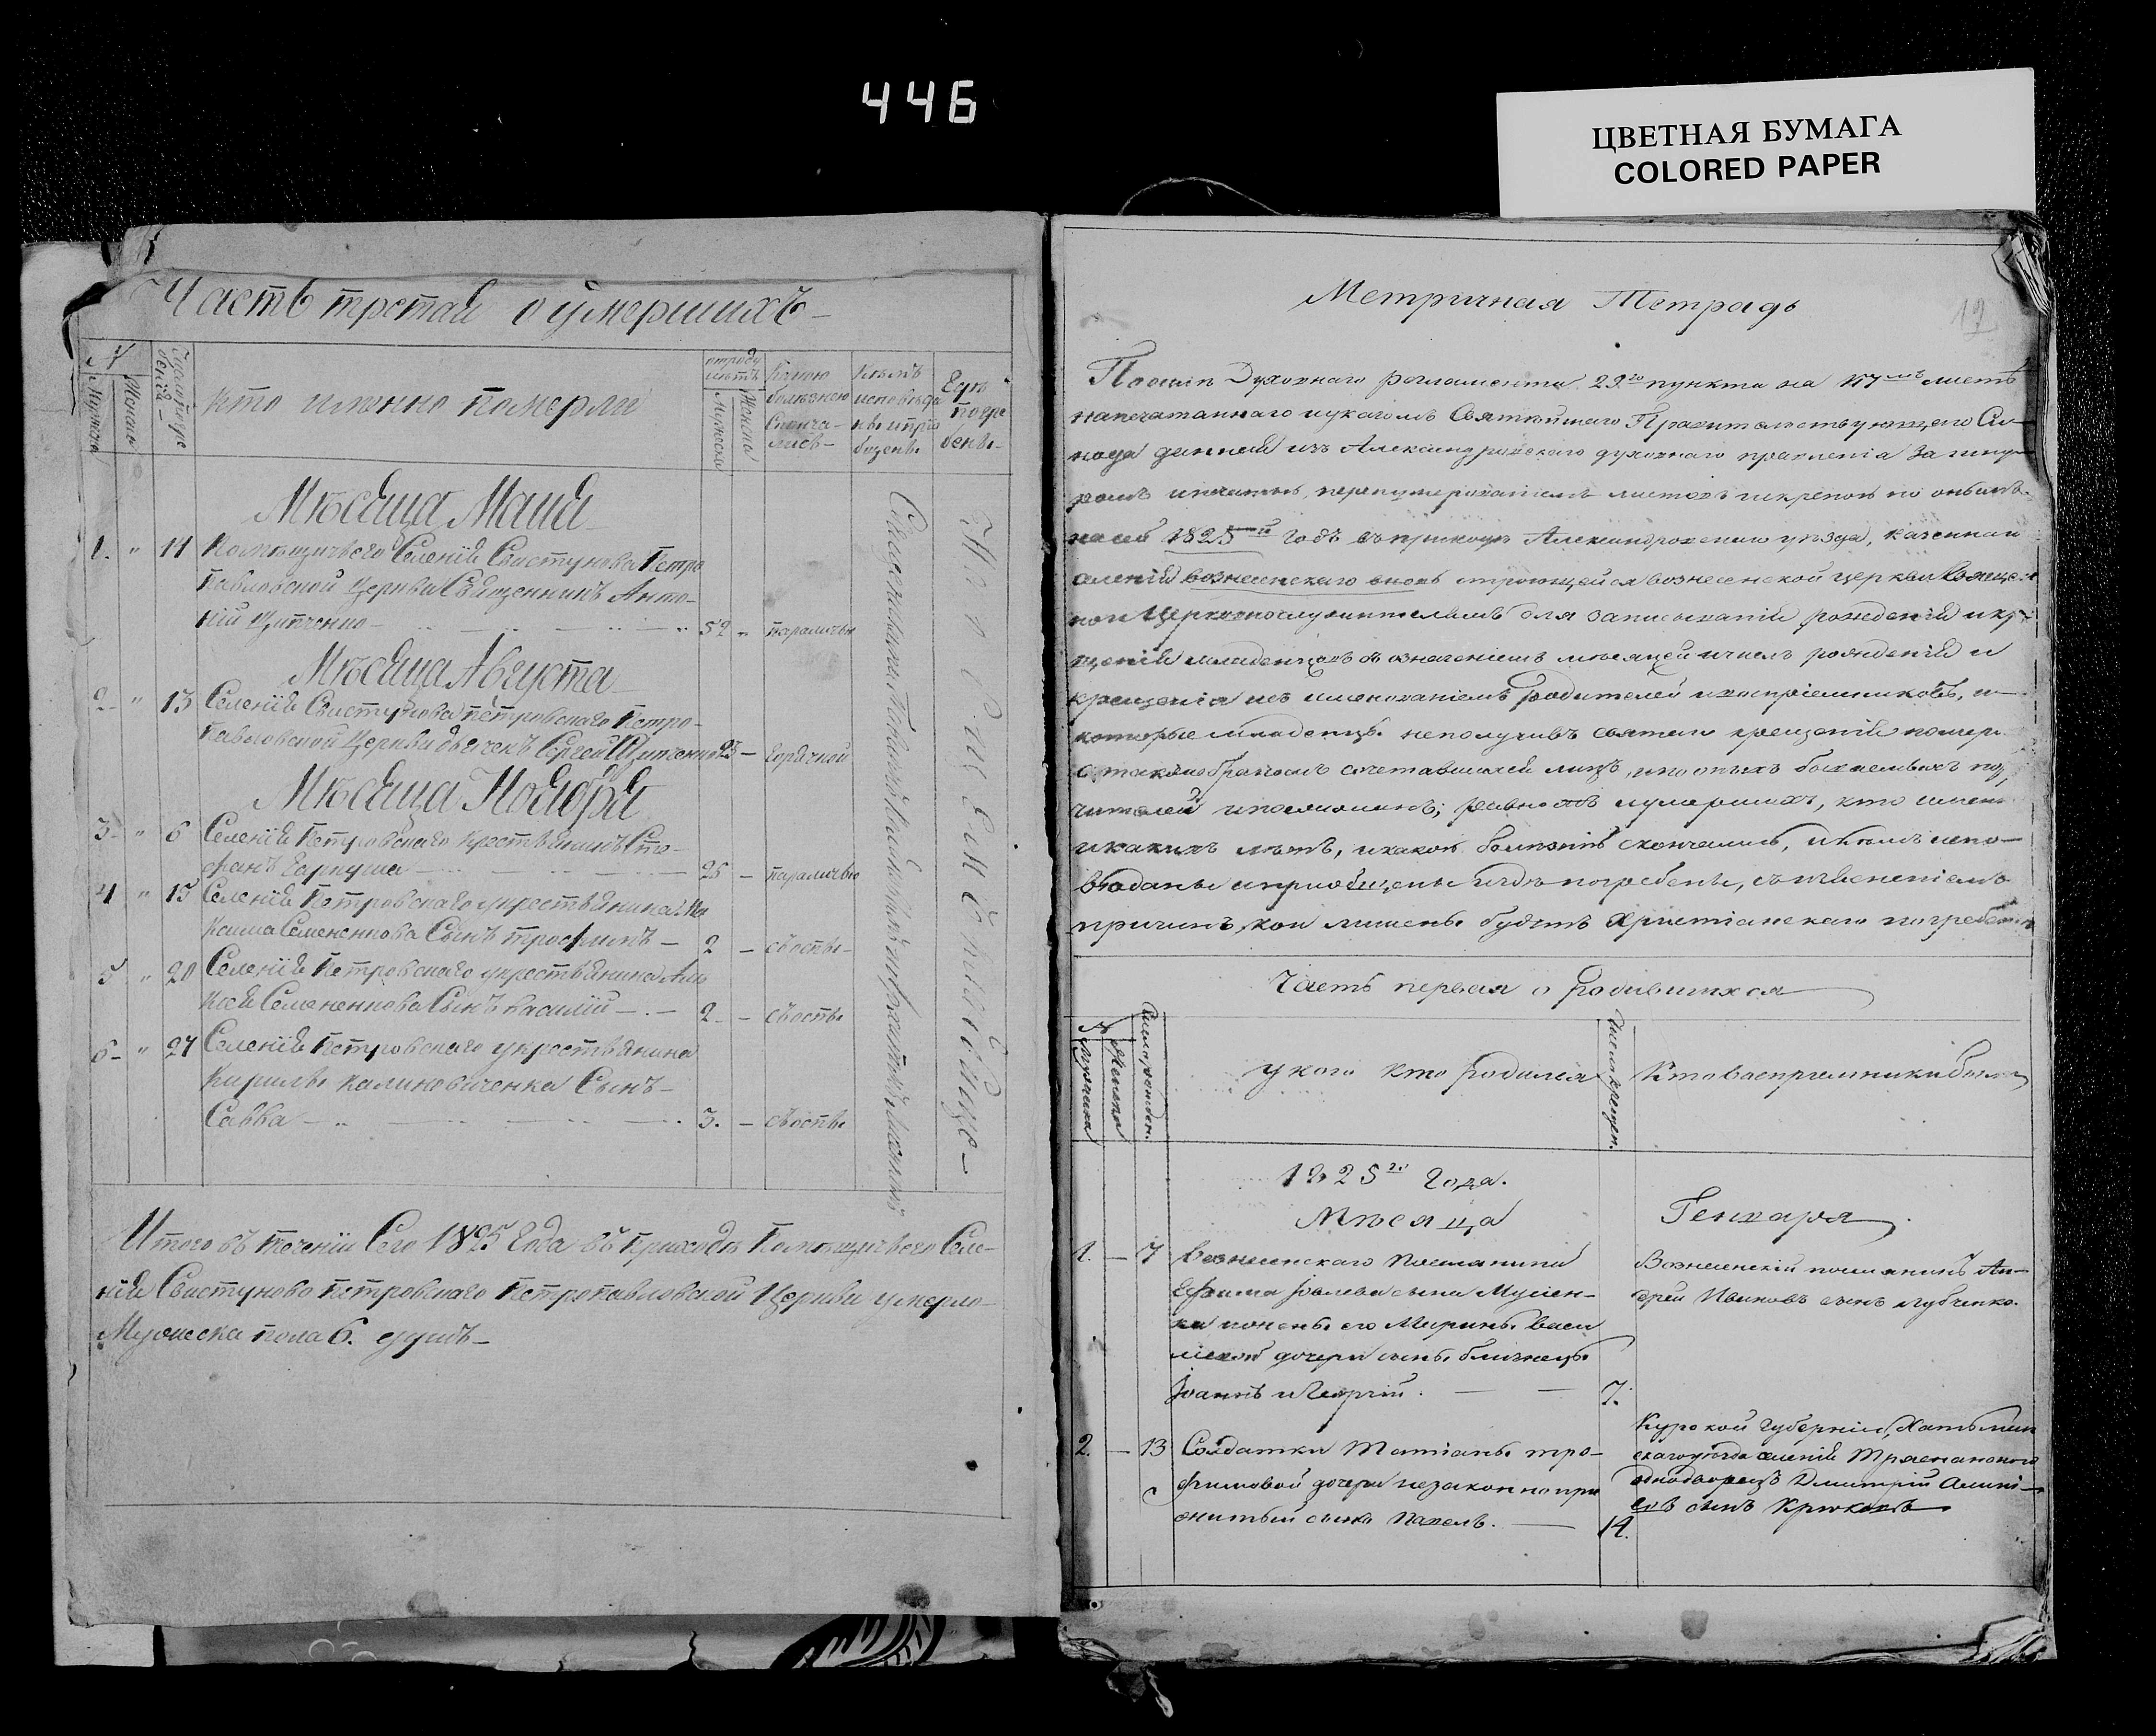 446
ЦВЕТНАЯ БУМАГА
COLORED PAPER
Часть третая о умершихъ
№
Мужска
Женска
Число погребенія
кто именно померли
отроду лѣтъ
Мужеска
Женска
Какою
болѣзнею
Сконча-
лись
Кѣмъ
исповѣда
ны и прiо
бщены
Гдѣ
погре
бены
Мѣсяца Маия
1. " 11 Помѣщичьего Селенїя Свистунова Петро
Павловской Церкви Священникъ Анто-
нїй Ципченко 52 " параличью
Мѣсяца Августа
2 " 13 Селенїя Свистунова Петровского Петро-
Павловской Церкви дьячекъ Сергей Ципченко 23 – горячкой
Мѣсяца Ноября
3 " 6 Селенїя Петровского крестьянинъ Сте-
фанъ Гаркуша 26 – параличью
4 " 15 Селенїя Петровского у крестьянина Ма
ксима Семененкова Сынъ трофимъ 2 – оспы
5 " 20 Селенїя Петровского у крестьянина Але
ксея Семененкова Сынъ василїй 2 – оспы
6 " 27 Селенїя Петровского у крестьянина
Кирилы калиновиченка Сынъ
Савва 3. – оспы
Итого въ теченїи Сего 1825 Года въ приходѣ Помѣщичьего Селе-
нїя Свистунова Петровского Петропавловской Церкви умерло
Мужеска пола 6. душъ
Метричная Тетрадь
12
По силѣ Духовнаго регламента 29го пункта на 117мъ листѣ
напечатаннаго и указомъ Святѣйшаго Правительствующего Си-
нода данной изъ Александровского духовнаго правленїя За шну
ромъ печатью, перенумерованїемъ листовъ и скрепою по онымъ
на сей 1825й годъ въ приходъ Александровского уѣзда, казеннаго
селенїя вознесенского вновь строющейся вознесенской церкви Священ
но и Церковнослужителямъ для записыванїя рожденїй и кре
щенїй младенцовъ со означенїемъ мѣсяцей и числъ рожденїя и
крещенїя и съ именованїемъ родителей и воспрїемниковъ, и
которые младенцы неполучивъ святаго крещенїя помер
о такожъ бракомъ сочетавшихся лицъ, и по оныхъ бываемыхъ пору
чителей; равно объ умершихъ, кто именно
и какихъ лѣтъ, и какою болезнїю скончались, и кѣмъ испо-
вѣданы и прїобщены и гдѣ погребены, съ изъясненїемъ
причинъ, кои лишены будутъ Христїанскаго погребенїя
Часть первая о родившихся
№
Мужеска
Женска
Числа рожден.
у кого кто родился
Числа крещен.
Кто воспрїемники были
1825го Года.
Мѣсяца Генваря
1. – 7 Вознесенскаго поселянина
Ефима Іовлева сына Мусїен-
ка и жены его Марины Васи
лїевой дочери сыны близнецы
Іоаннъ и Георгїй. 7.
Вознесенскїй поселянинъ Ан-
дрей Ивановъ сынъ Лубченко.
2. – 13 Солдатки Татїаны тро-
фимовой дочери незаконнопри
житый сынъ Павелъ. 14.
Курской Губернїи, Хотьмыж
скаго уѣзда селенїя
однодворецъ Дмитрїй
сынъ Крюковъ